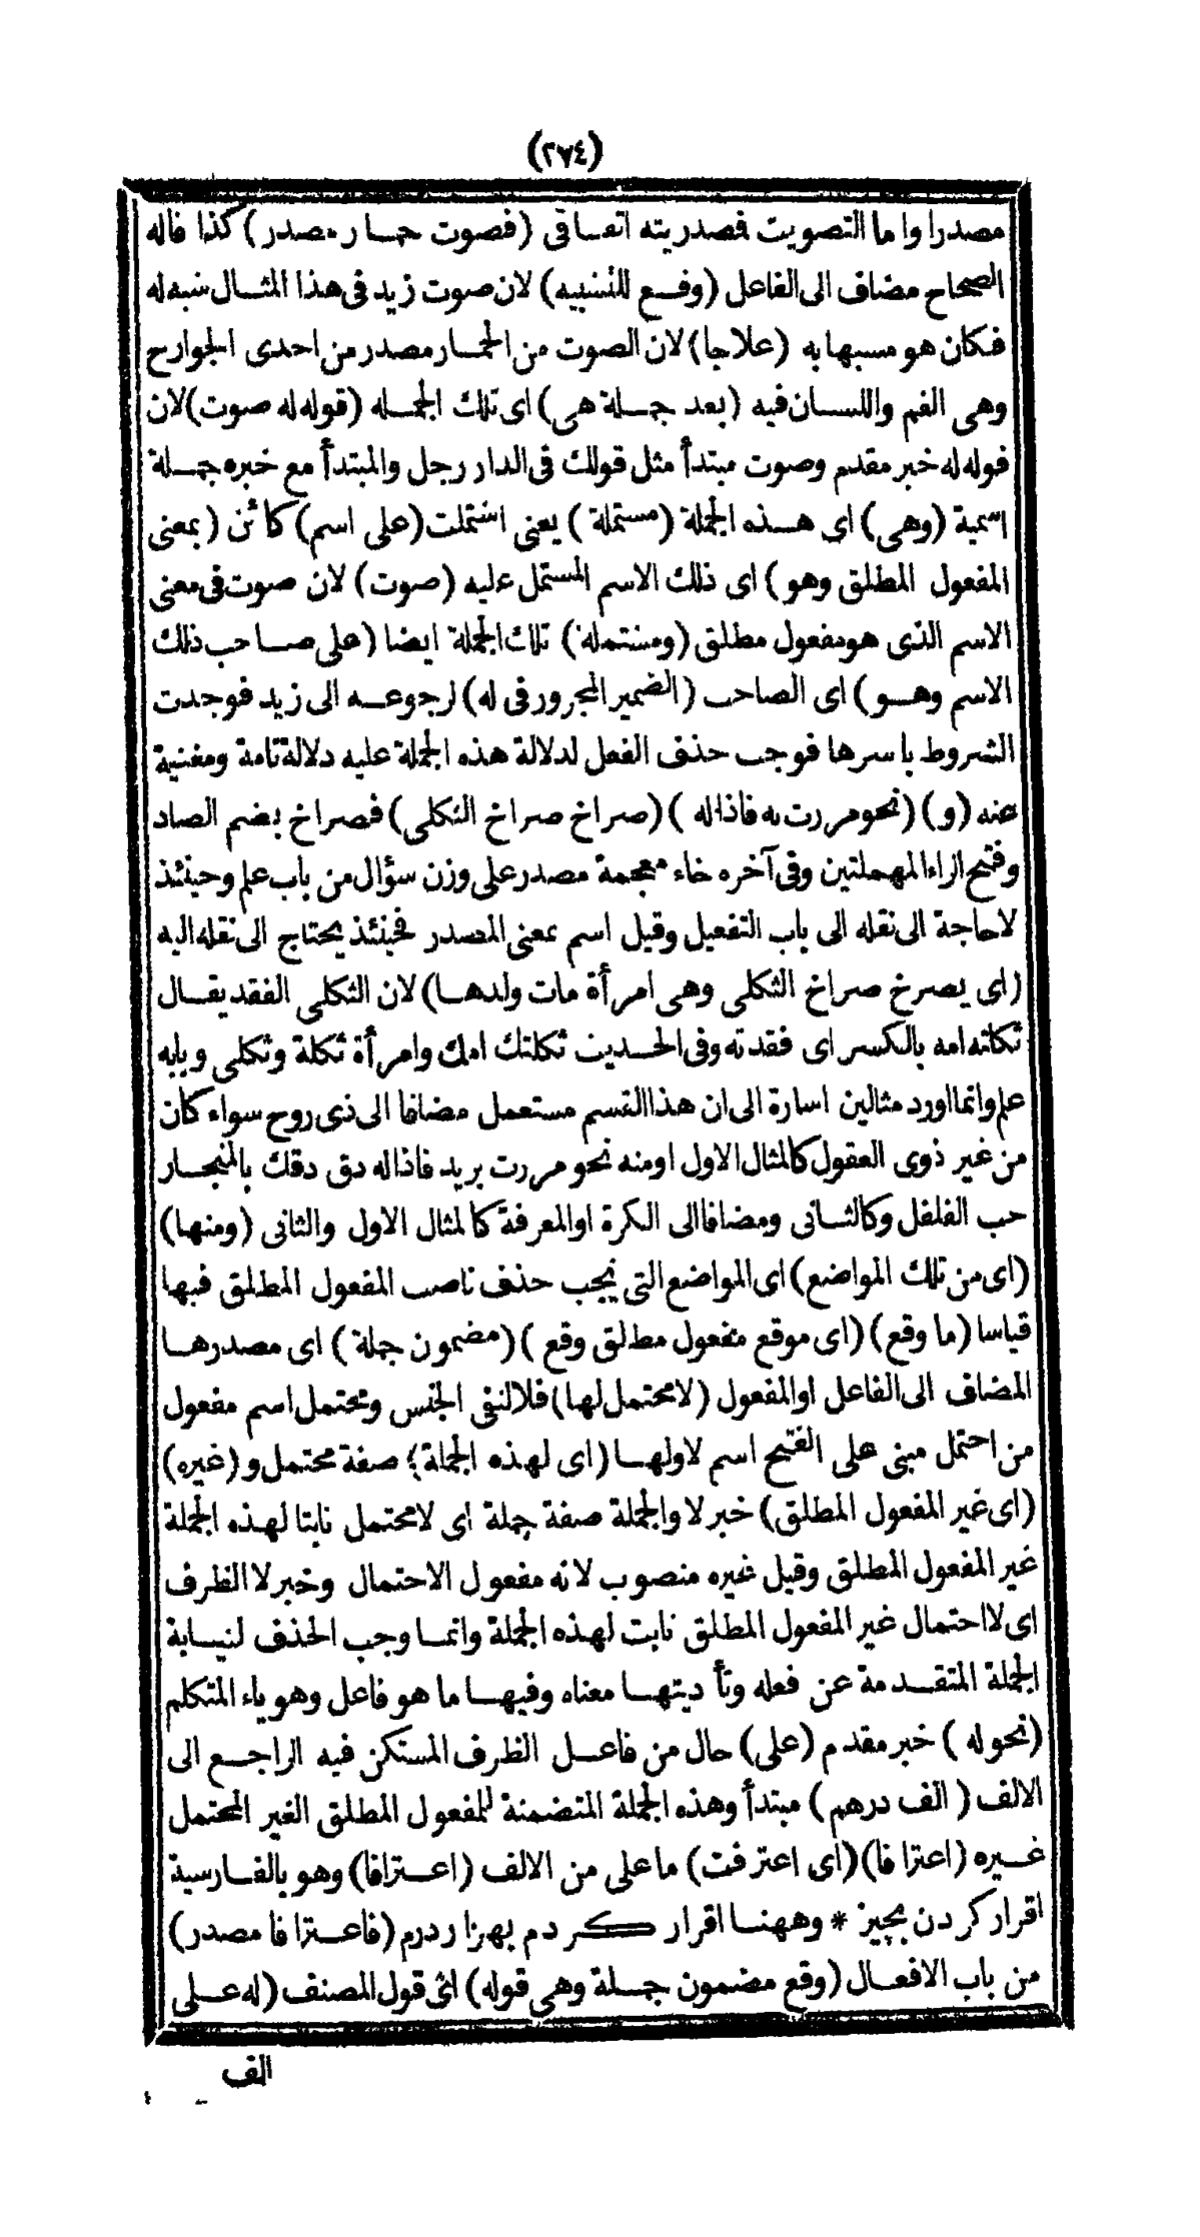 (٢٧٤)
مصدرا واما التصويت فصدريته اتفاقى (فصوت حمار مصدر) كذا قاله
الصحاح مضاف الى الفاعل (وقع للتشبيه) لان صوت زيد فى هذا المثال شبه له
فكان هو مشبها به (علاجا) لان الصوت من الحمار مصدر من احدى الجوارح
وهى الفم واللسان فيه (بعد جملة هى) اى تلك الجملة (قوله له صوت) لان
قوله له خبر مقدم وصوت مبتدأ مثل قولك فى الدار رجل والمبتدأ مع خبره جملة
اسمية (وهى) اى هذه الجملة (مشتملة) يعنى اشتملت (على اسم) كائن (بمعنى
المفعول المطلق وهو) اى ذلك الاسم المشتمل عليه (صوت) لان صوت فى معنى
الاسم الذى هو مفعول مطلق (ومشتملة) تلك الجملة ايضا (على صاحب ذلك
الاسم وهو) اى الصاحب (الضمير المجرور فى له) لرجوعه الى زيد فوجدت
الشروط باسرها فوجب حذف الفعل لدلالة هذه الجملة عليه دلالة تامة ومغنية
عنه (و) (نحو مررت به فاذا له) (صراخ صراخ الثكلى) فصراخ بضم الصاد
وفتح الراء المهملتين وفى آخره خاء معجمة مصدر على وزن سؤال من باب علم وحينئذ
لاحاجة الى نقله الى باب التفعيل وقيل اسم بمعنى المصدر فحينئذ يحتاج الى نقله اليه
(اى يصرخ صراخ الثكلى وهى امرأة مات ولدها) لان الثكلى الفقد يقال
ثكلته امه بالكسر اى فقدته وفى الحديث ثكلتك امك وامرأة ثكلة وثكلى وبابه
علم وانما اورد مثالين اشارة الى ان هذا القسم مستعمل مضافا الى ذى روح سواء كان
من غير ذوى العقول كالمثال الاول او منه نحو مررت بريد فاذا له دق دقك بالمنجار
حب الفلفل وكالثانى ومضافا الى النكرة او المعرفة كالمثال الاول والثانى (ومنها)
(اى من تلك المواضع) اى المواضع التى يجب حذف ناصب المفعول المطلق فيها
قياسا (ما وقع) (اى موقع مفعول مطلق وقع) (مضمون جملة) اى مصدرها
المضاف الى الفاعل او المفعول (لا محتمل لها) فلا لنفى الجنس ومحتمل اسم مفعول
من احتمل مبنى على الفتح اسم لا ولها (اى لهذه الجملة) صفة محتمل و (غيره)
(اى غير المفعول المطلق) خبر لا والجملة صفة جملة اى لا محتمل ثابتا لهذه الجملة
غير المفعول المطلق وقيل غيره منصوب لانه مفعول الاحتمال وخبر لا الظرف
اى لا احتمال غير المفعول المطلق ثابت لهذه الجملة وانما وجب الحذف لنيابة
الجملة المتقدمة عن فعله وتأديتها معناه وفيها ما هو فاعل وهو ياء المتكلم
(نحو له) خبر مقدم (على) حال من فاعل الظرف المستكن فيه الراجع الى
الالف (الف درهم) مبتدأ وهذه الجملة المتضمنة للمفعول المطلق الغير المحتمل
غيره (اعترافا) (اى اعترفت) ما على من الالف (اعترافا) وهو بالفارسية
اقرار كردن بچيز * وههنا اقرار كردم بهزار درم (فاعترافا مصدر)
من باب الافعال (وقع مضمون جملة وهى قوله) اى قول المصنف (له على
الف